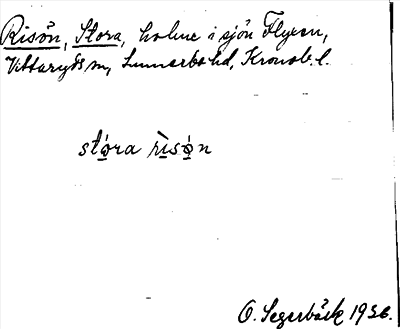 Risön, Stora, holme i sjön Flyren,
Vittaryds sn, Sunnerbo hd, Kronob. l.
stóra rìsö̀n
O. Segerbäck 1936.